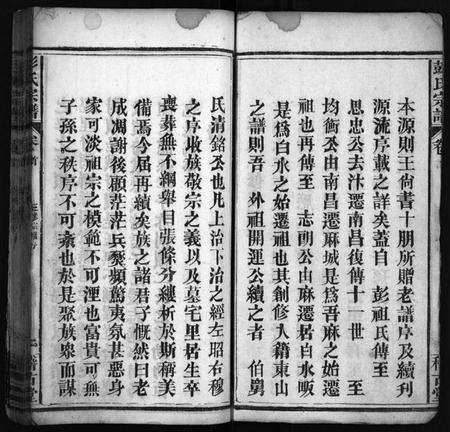 本源則王尚書十朋所贈老譜序及續刋
源流序載之詳矣蓋自　彭祖氏傳至
思忠公去汴遷南昌復傳十一世　至
均衡公由南昌遷麻城是爲吾麻之始遷
祖也再傳至　志朗公由麻遷居白水畈
是爲白水之始遷祖也其創修人籍東山
之譜則吾　外祖開運公續之者　伯舅
氏清銘公也凡上治下治之經左昭右穆
之序收族敬宗之義以及墓宅里居生卒
喪葬無不綱舉目張條分縷析於斯稱美
備焉今屆再續矣族之諸君子慨然曰老
成凋謝後顧茫茫兵燹頻驚夷氛甚惡身
家可淡祖宗之模範不可湮也富貴可無
子孫之秩序不可紊也於是聚族衆而謀
彭氏宗譜
卷首
彭氏宗譜